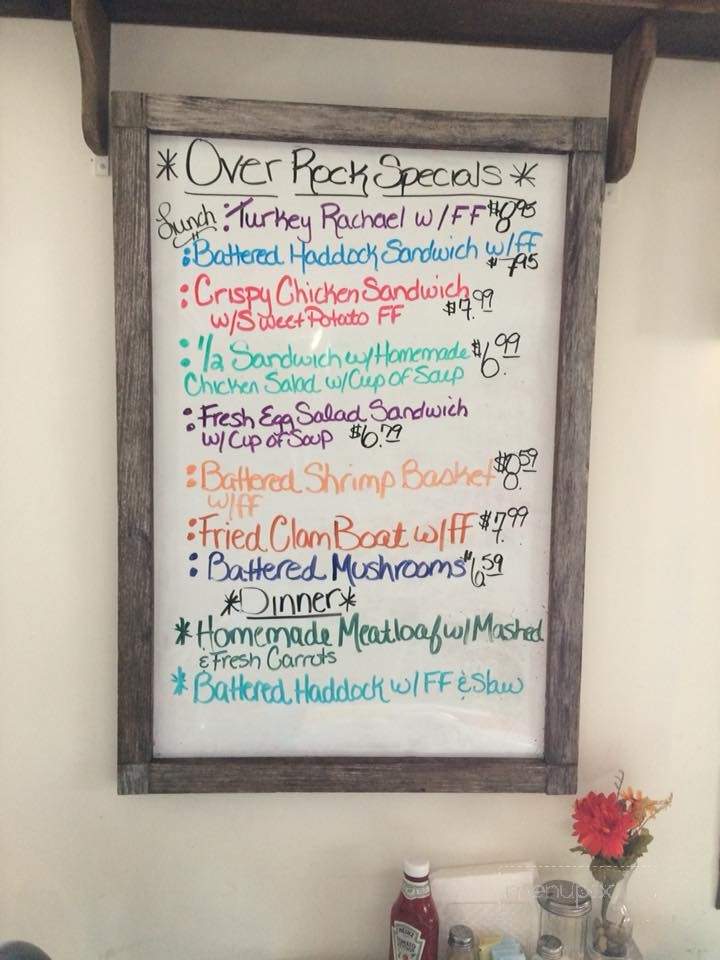 * Over Rock Specials *
Lunch : Turkey Rachael w/FF $8.95
: Battered Haddock Sandwich w/ff
$7.95
: Crispy Chicken Sandwich
w/Sweet Potato FF $7.99
: 1/2 Sandwich w/Homemade $6.99
Chicken Salad w/Cup of Soup
: Fresh Egg Salad Sandwich
w/Cup of Soup $6.79
: Battered Shrimp Basket $8.59
w/ff
: Fried Clam Boat w/ff $7.99
: Battered Mushrooms $6.59
*Dinner*
* Homemade Meatloaf w/Mashed
& Fresh Carrots
* Battered Haddock w/FF & Slaw
HEINZ
menupix